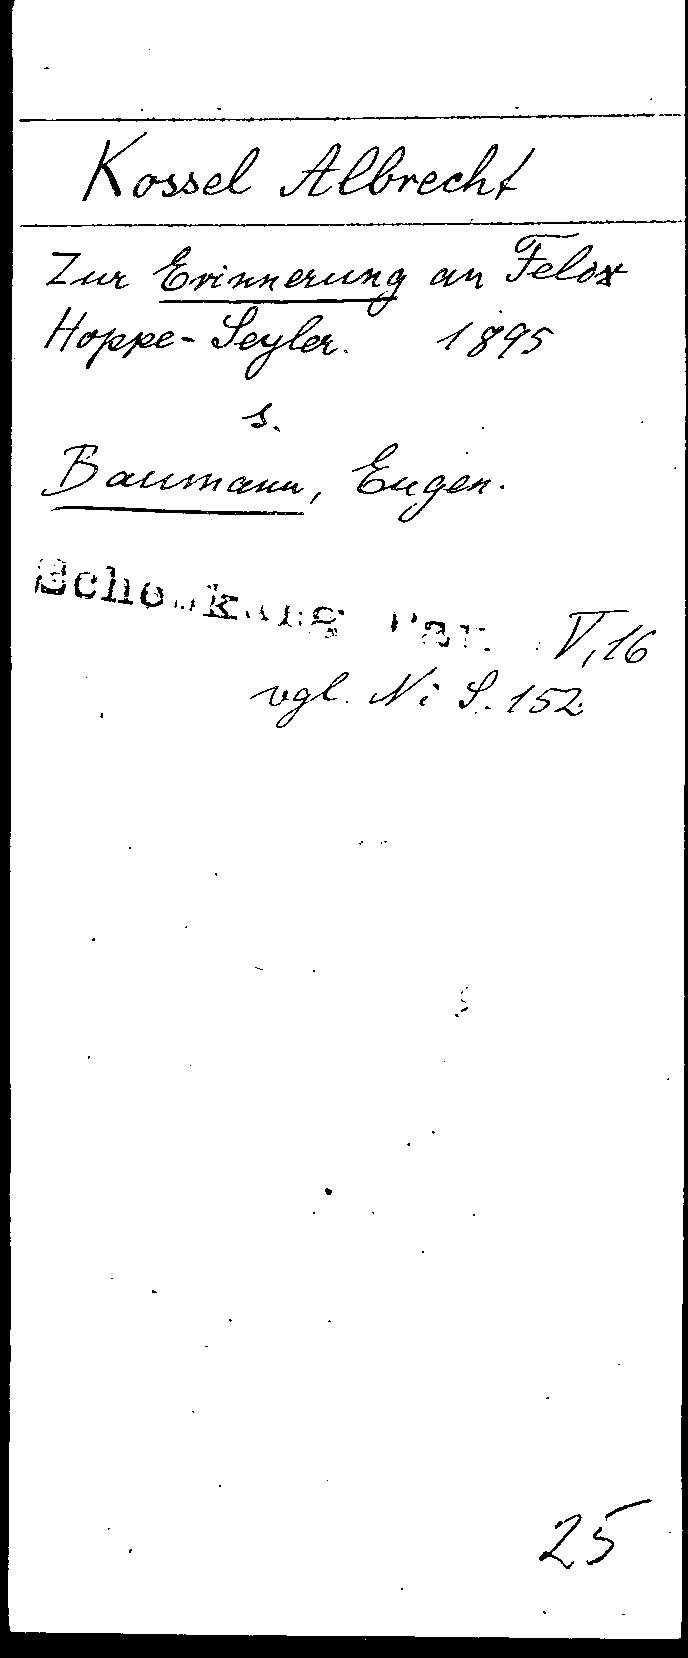 Kossel Albrecht
Zur Erinnerung an Felix
Hoppe-Seyler. 1895
s.
Baumann, Eugen.
Schenkung V, 16
vgl. N: S. 152
25